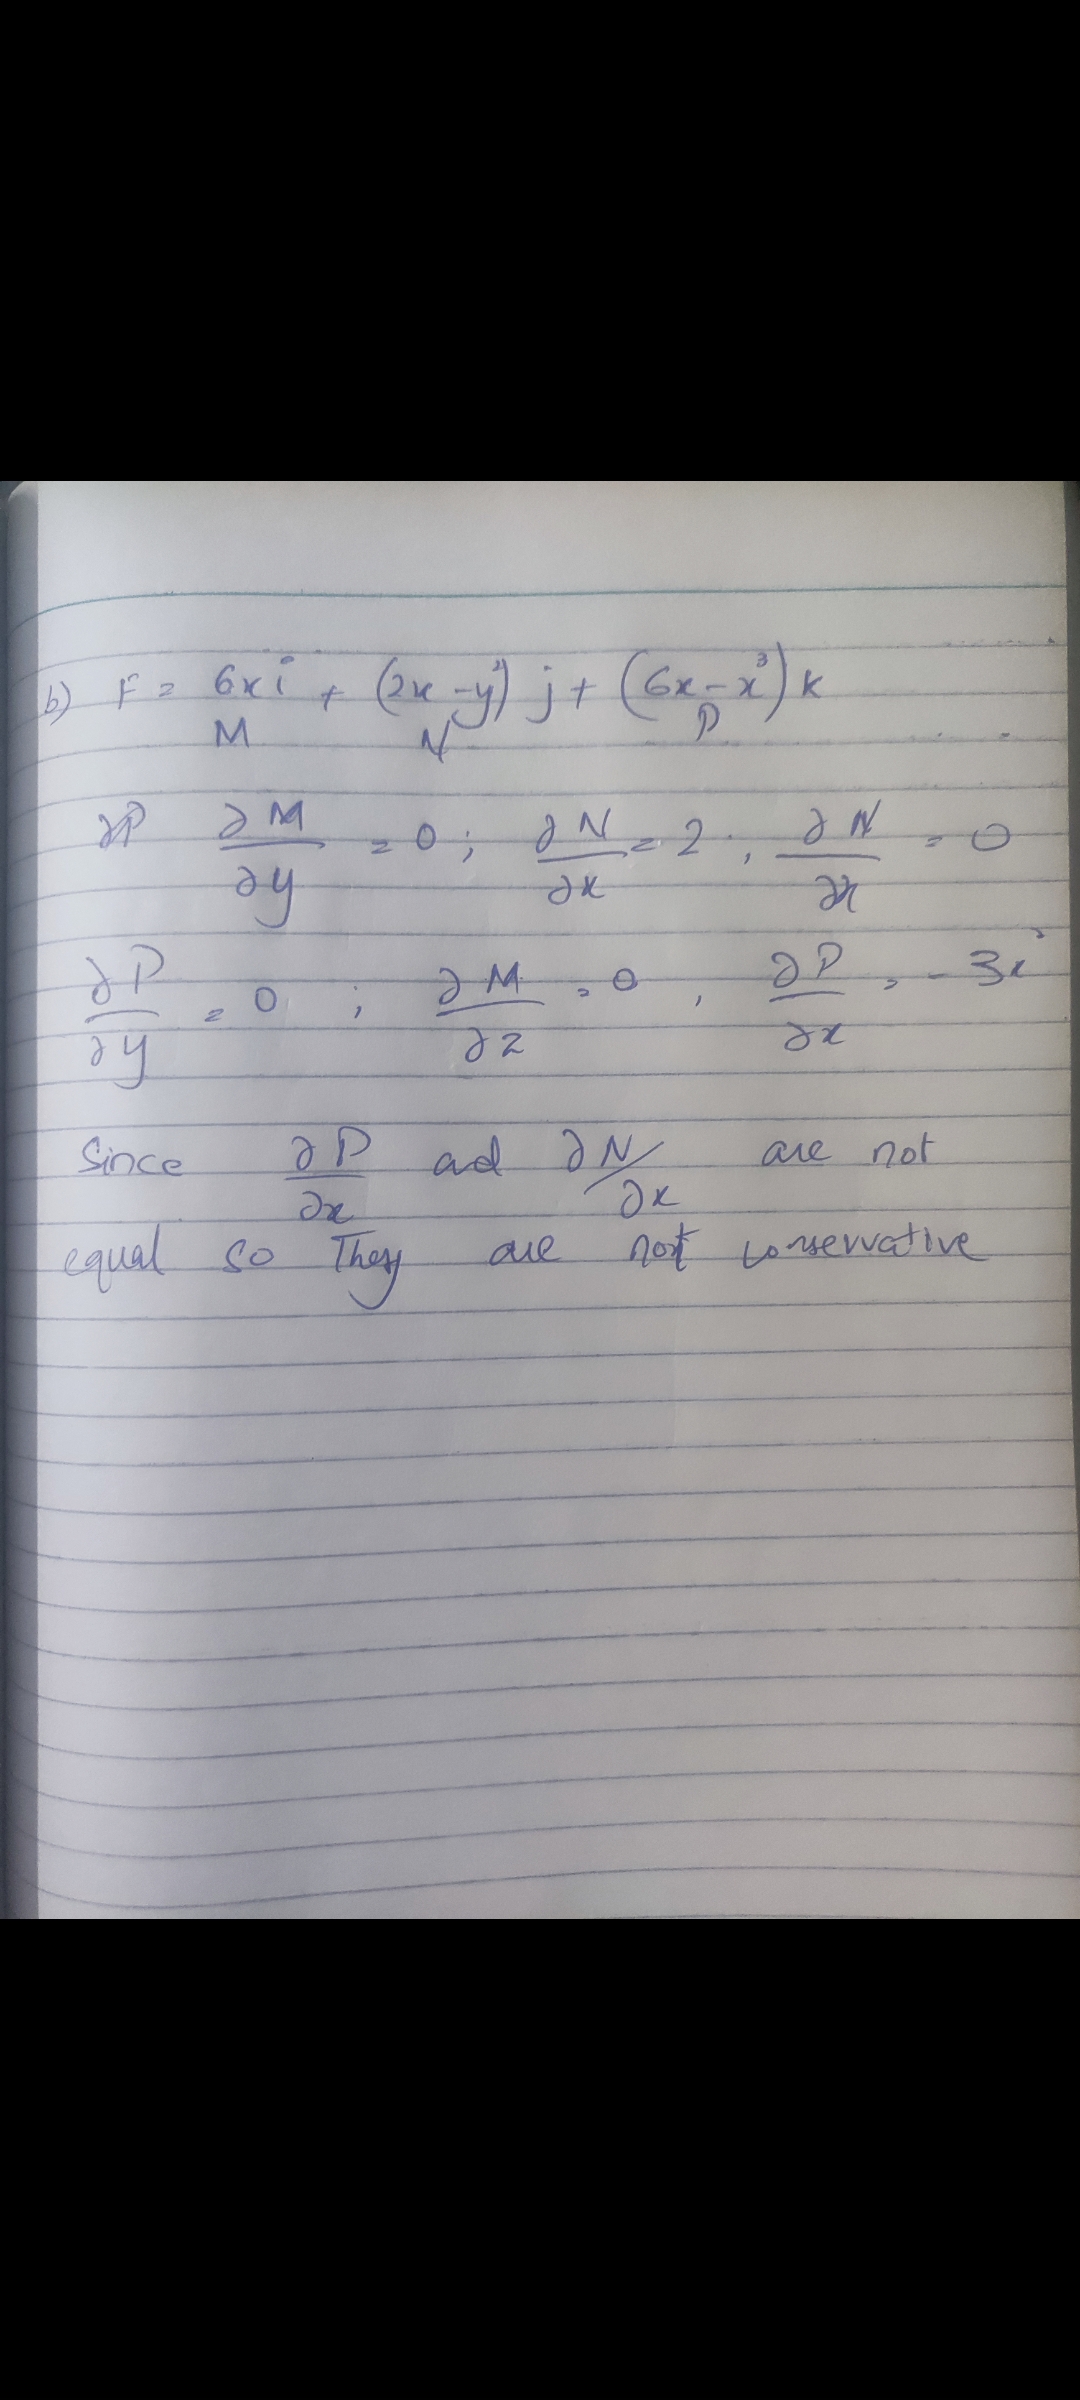 b) F = 6xi + (2x - y²) j + (6x - x³) k
M N P
∂P ∂M/∂y = 0 ; ∂N/∂x = 2 , ∂N/∂x = 0
∂P/∂y = 0 ; ∂M/∂z = 0 , ∂P/∂x = -3x²
Since ∂P/∂x and ∂N/∂x are not
equal so They are not conservative